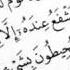 شْفَعُ عِندَهُۥٓ إِلَّا
حِيطُونَ بِشَىْ